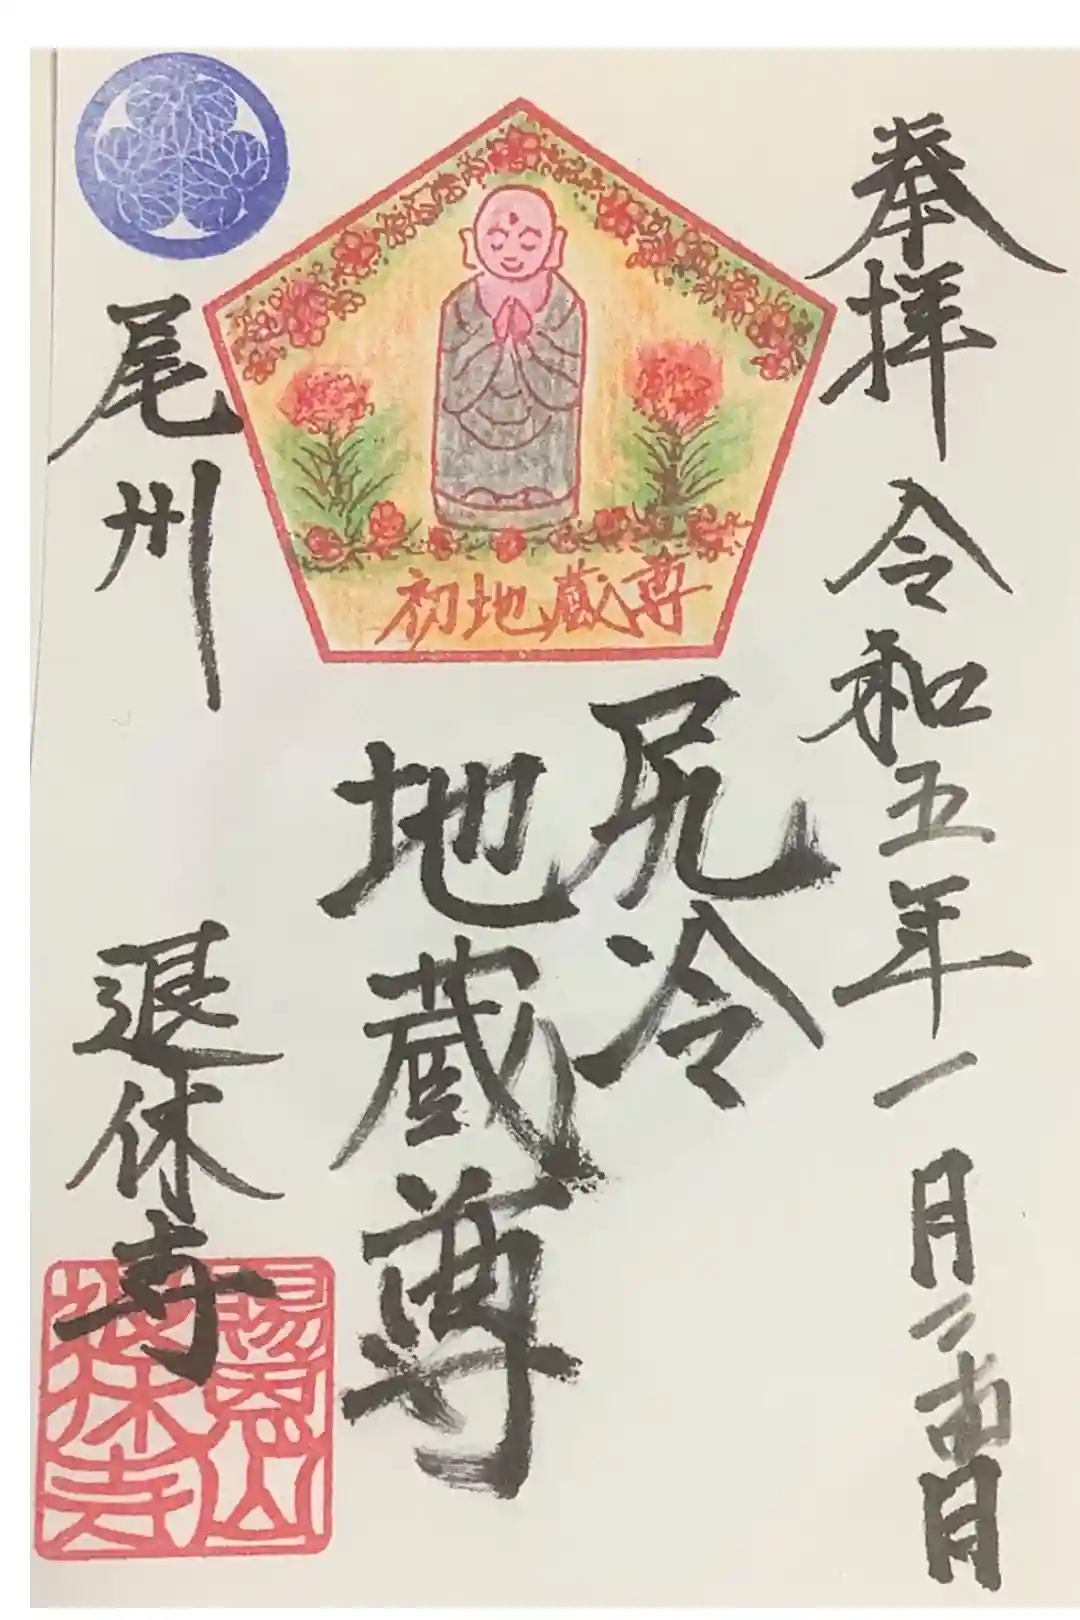 奉拝 令和五年一月二十四日
初地蔵尊
尻冷
地蔵尊
尾州 退休寺
賜恩山
退休寺